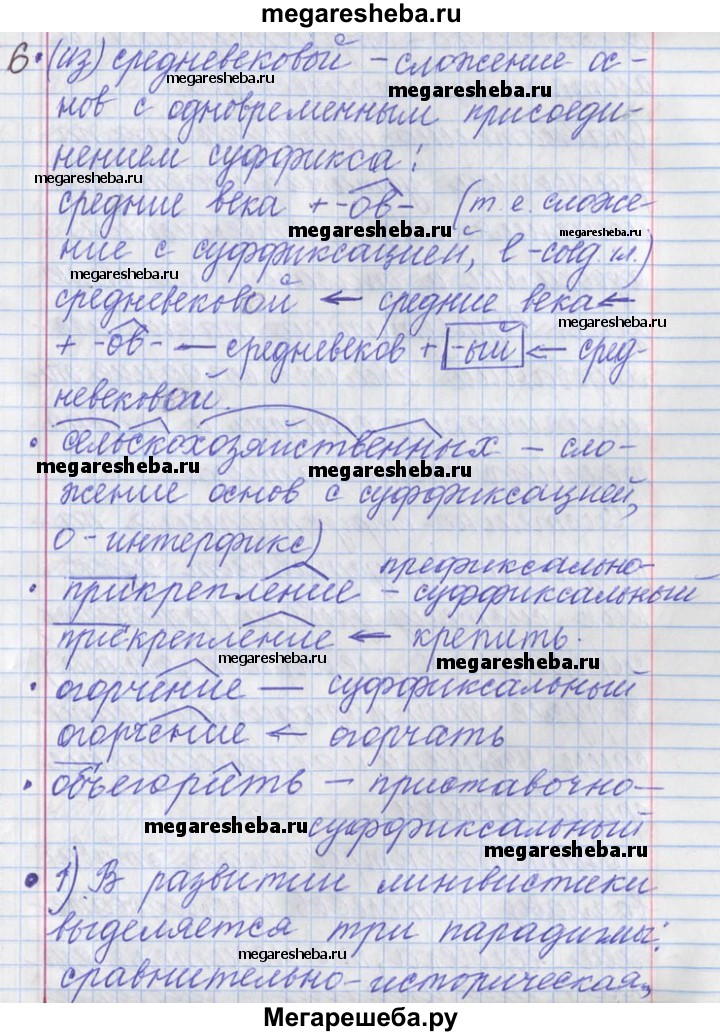 megaresheba.ru
6. (из) средневековой – сложение ос-
megaresheba.ru
megaresheba.ru
нов с одновременным присоеди-
нением суффикса:
megaresheba.ru
средние века + -ов- (т.е. сложе-
megaresheba.ru
megaresheba.ru
ние с суффиксацией, е -соед. гл.)
megaresheba.ru
средневековой ← средние века ←
megaresheba.ru
+ -ов- — средневеков + -ый ← сред-
megaresheba.ru
невековой.
• сельскохозяйственных – сло-
megaresheba.ru
megaresheba.ru
жение основ с суффиксацией,
о - интерфикс)
префиксально-
• прикрепление – суффиксальный
прикрепление ← крепить.
megaresheba.ru
megaresheba.ru
• огорчение — суффиксальный
огорчение ← огорчать
• объегорить – приставочно-
megaresheba.ru
суффиксальный
megaresheba.ru
• 1) В развитии лингвистики
выделяется три парадигмы:
megaresheba.ru
megaresheba.ru
сравнительно-историческая,
Мегарешеба.ру